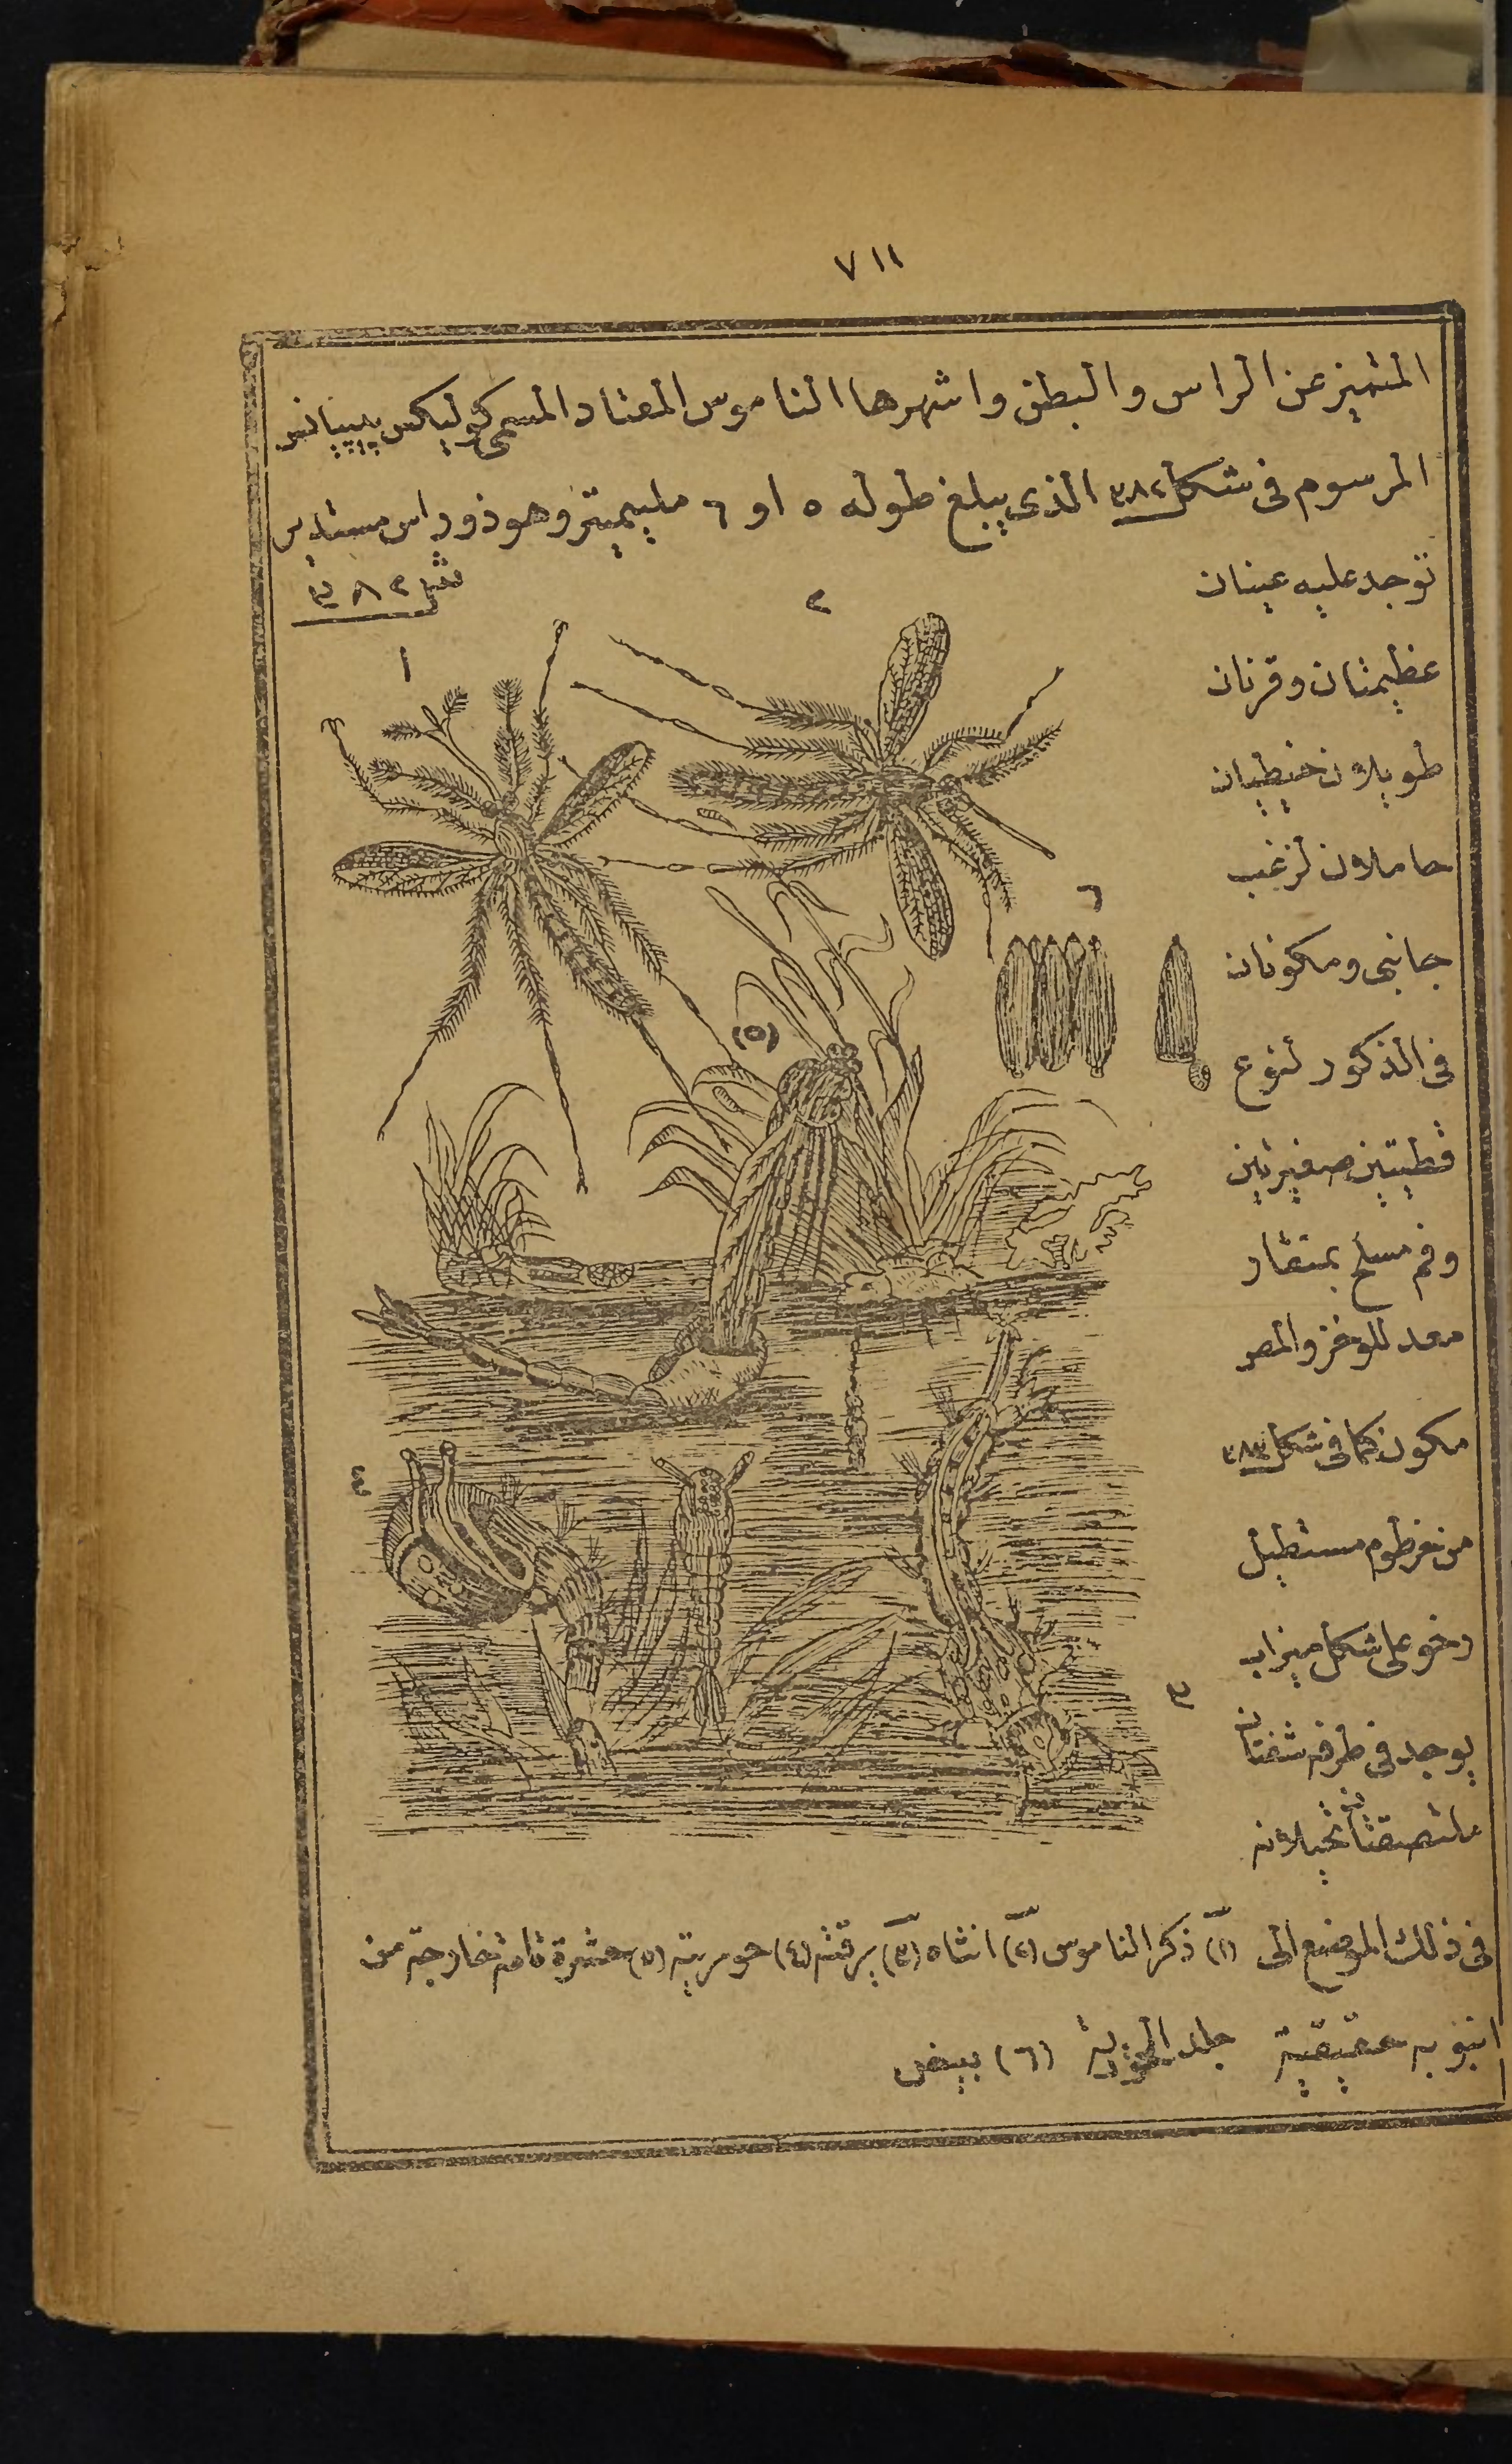 ٧١١
المتميز عن الراس والبطن واشهرها الناموس المعتاد المسمى كوليكس پيپيانس
المرسوم فى شكل ٣٨٢ الذى يبلغ طوله ٥ او ٦ مليميتر وهو ذو راس مستدير
توجد عليه عينان
عظيمتان وقرنان
طويلان خيطيان
حاملان لزغب
جانبى ومكونان
فى الذكور لنوع
قطيتين صغيرتين
وفم مسلح بمنقار
معد للوخز والمص
مكون كما فى شكل ٣٨٣
من خرطوم مستطيل
رخو على شكل ميزاب
يوجد فى طرفه شفتان
ملتصقتان تحيلان
فى ذلك الموضع الى
انبوبه حقيقية
ش ٣٨٢
١
٢
٦
(٥)
٤
٣
(١) ذكر الناموس (٢) انثاه (٣) يرقته (٤) حوريته (٥) حشرة تامة خارجة من
جلد الحورية (٦) بيض